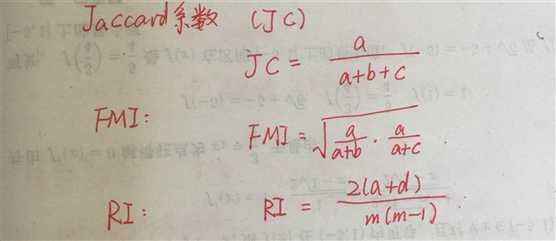 Jaccard系数 (JC)
JC = a/(a+b+c)
FMI: FMI = √(a/(a+b) · a/(a+c))
RI: RI = 2(a+d)/(m(m-1))